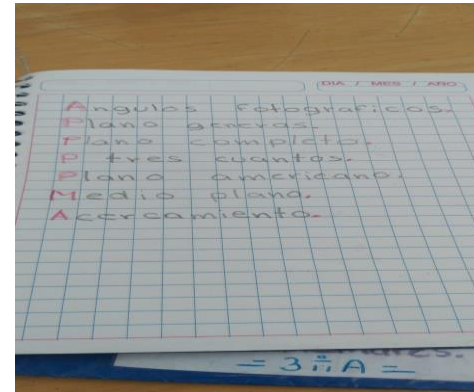 DIA / MES / AÑO
Angulos Fotograficos.
Plano generas.
Plano completo.
P tres cuantos.
Plano americano.
Medio plano.
Acercamiento.
= 3 A =